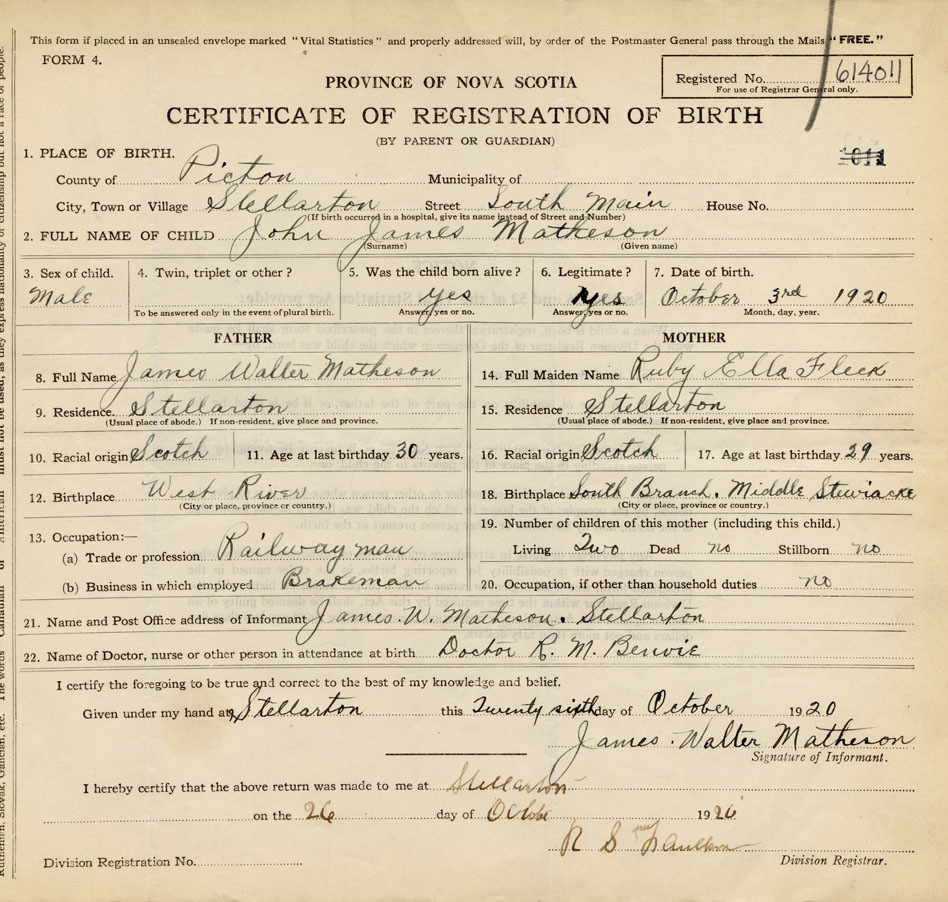 This form if placed in an unsealed envelope marked "Vital Statistics" and properly addressed will, by order of the Postmaster General pass through the Mails "FREE."
FORM 4.
Registered No. 614011
For use of Registrar General only.
PROVINCE OF NOVA SCOTIA
CERTIFICATE OF REGISTRATION OF BIRTH
(BY PARENT OR GUARDIAN)
1. PLACE OF BIRTH.
County of Picton Municipality of
City, Town or Village Stellarton Street South Main House No.
(If birth occurred in a hospital, give its name instead of Street and Number)
2. FULL NAME OF CHILD John James Matheson
(Surname) (Given name)
3. Sex of child. Male
4. Twin, triplet or other?
To be answered only in the event of plural birth.
5. Was the child born alive? yes
Answer, yes or no.
6. Legitimate? yes
Answer, yes or no.
7. Date of birth.
October 3rd 1920
Month, day, year.
FATHER
8. Full Name James Walter Matheson
9. Residence. Stellarton
(Usual place of abode.) If non-resident, give place and province.
10. Racial origin Scotch 11. Age at last birthday 30 years.
12. Birthplace West River
(City or place, province or country.)
13. Occupation:—
(a) Trade or profession Railway man
(b) Business in which employed Brakeman
MOTHER
14. Full Maiden Name Ruby Ella Fleck
15. Residence Stellarton
(Usual place of abode.) If non-resident, give place and province.
16. Racial origin Scotch 17. Age at last birthday 29 years.
18. Birthplace South Branch. Middle Stewiacke
(City or place, province or country.)
19. Number of children of this mother (including this child.)
Living Two Dead no Stillborn no
20. Occupation, if other than household duties no
21. Name and Post Office address of Informant James. W. Matheson. Stellarton
22. Name of Doctor, nurse or other person in attendance at birth Doctor R. M. Benvie
I certify the foregoing to be true and correct to the best of my knowledge and belief.
Given under my hand at Stellarton this Twenty sixth day of October 1920
James. Walter Matheson
Signature of Informant.
I hereby certify that the above return was made to me at Stellarton
on the 26 day of Octobe 1920
R S
Division Registration No. Division Registrar.